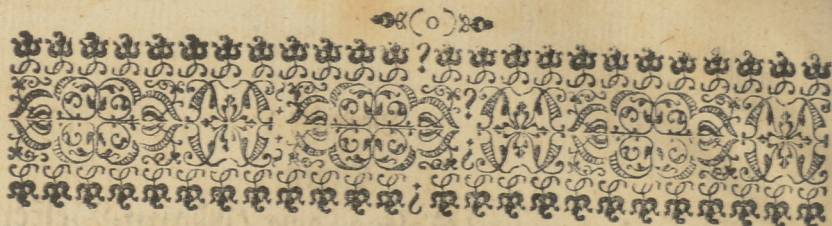 (o)
?
?
:
¿
:
¿